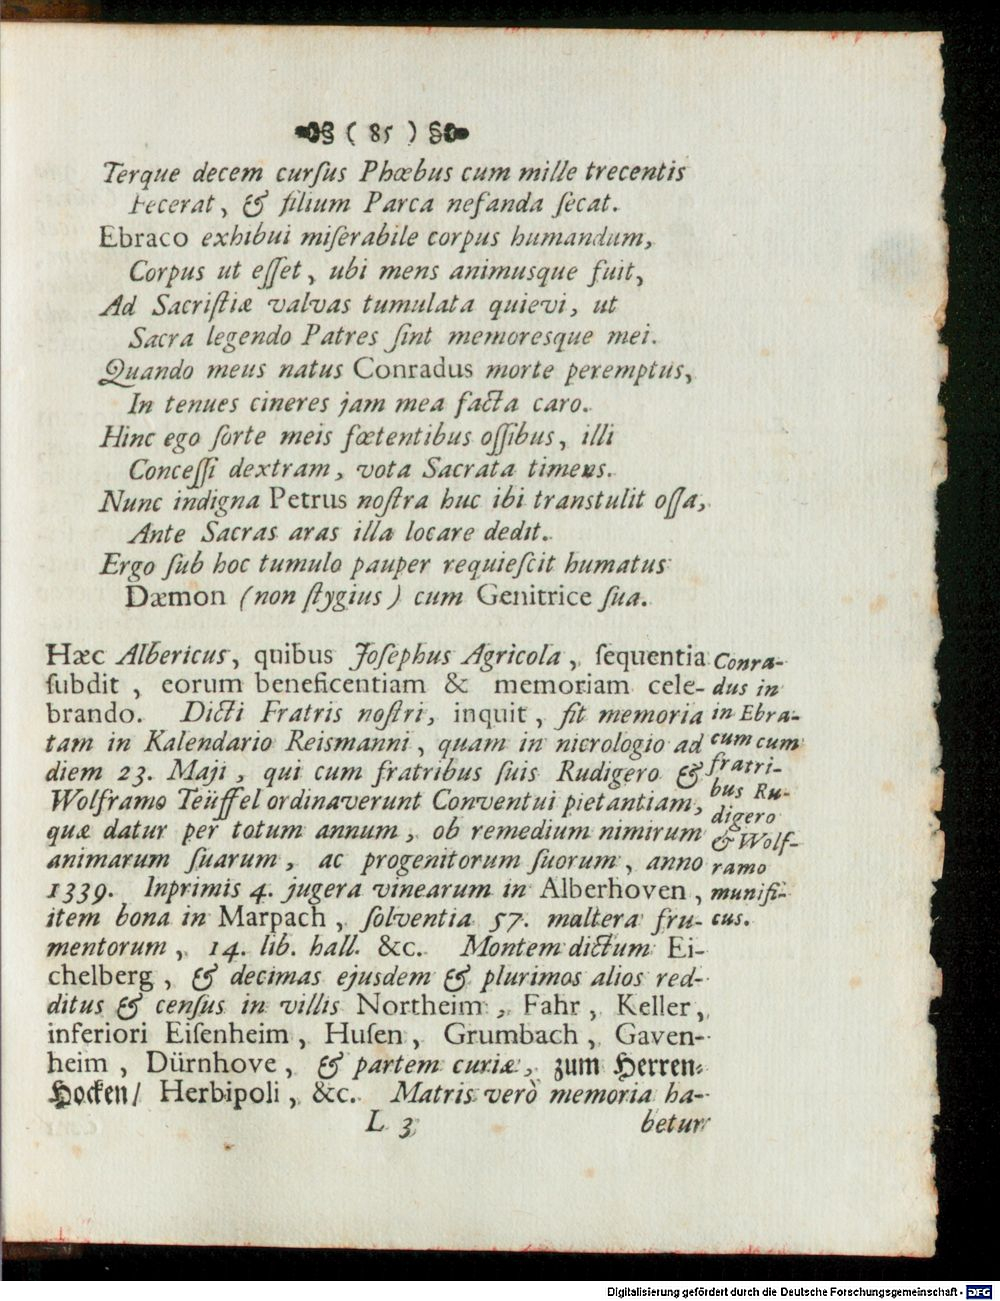 ( 85 )
Terque decem curſus Phœbus cum mille trecentis
Fecerat, & filium Parca nefanda ſecat.
Ebraco exhibui miſerabile corpus humandum,
Corpus ut eſſet, ubi mens animusque fuit,
Ad Sacriſtiæ valvas tumulata quievi, ut
Sacra legendo Patres ſint memoresque mei.
Quando meus natus Conradus morte peremptus,
In tenues cineres jam mea facta caro.
Hinc ego ſorte meis fœtentibus oſſibus, illi
Conceſſi dextram, vota Sacrata timens.
Nunc indigna Petrus noſtra huc ibi transtulit oſſa,
Ante Sacras aras illa locare dedit.
Ergo ſub hoc tumulo pauper requieſcit humatus
Dæmon (non ſtygius) cum Genitrice ſua.
Hæc Albericus, quibus Joſephus Agricola, ſequentia
ſubdit, eorum beneficentiam & memoriam cele-
brando. Dicti Fratris noſtri, inquit, fit memoria
tam in Kalendario Reismanni, quam in nicrologio ad
diem 23. Maji, qui cum fratribus ſuis Rudigero &
Wolframo Teüffel ordinaverunt Conventui pietantiam,
quæ datur per totum annum, ob remedium nimirum
animarum ſuarum, ac progenitorum ſuorum, anno
1339. Inprimis 4. jugera vinearum in Alberhoven,
item bona in Marpach, ſolventia 57. maltera fru-
mentorum, 14. lib. hall. &c. Montem dictum Ei-
chelberg, & decimas ejusdem & plurimos alios red-
ditus & cenſus in villis Northeim, Fahr, Keller,
inferiori Eiſenheim, Huſen, Grumbach, Gaven-
heim, Dürnhove, & partem curiæ, zum Herren-
Hocken/ Herbipoli, &c. Matris verò memoria ha-
L 3
betur
Conra-
dus in
in Ebra-
cum cum
fratri-
bus Ru-
digero
& Wolf-
ramo
munifi-
cus.
Digitalisierung gefördert durch die Deutsche Forschungsgemeinschaft - DFG